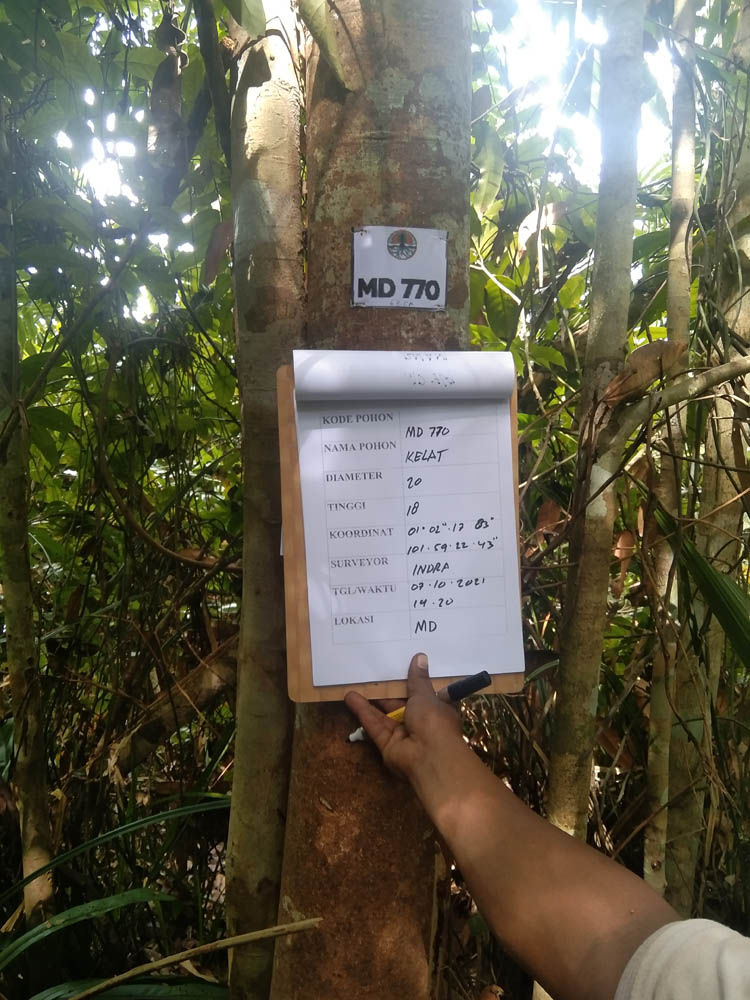 MD 770
KODE POHON MD 770
NAMA POHON KELAT
DIAMETER 20
TINGGI 18
KOORDINAT 01° 02" 17 83"
101·59·22·43"
SURVEYOR INDRA
TGL/WAKTU 07·10·2021
14·20
LOKASI MD